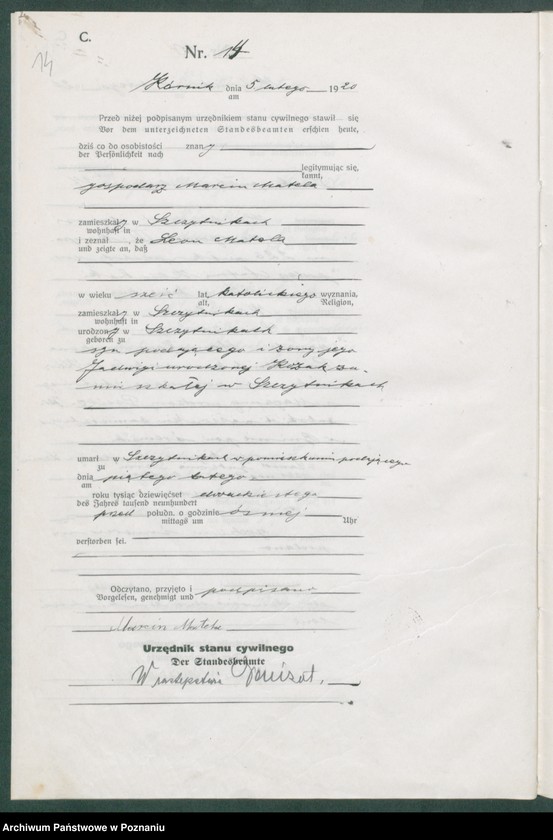 C.
14
Nr. 14
Kórnik dnia 5 lutego 1920
am
Przed niżej podpisanym urzędnikiem stanu cywilnego stawił się
Vor dem unterzeichneten Standesbeamten erschien heute,
dziś co do osobistości znany
der Persönlichkeit nach
legitymując się,
kannt,
gospodarz Marcin Matela
zamieszkały w Szczytnikach
wohnhaft in
i zeznał, że Leon Matela
und zeigte an, daß
w wieku sześć lat, katolickiego wyznania,
alt, Religion,
zamieszkały w Szczytnikach
wohnhaft in
urodzony w Szczytnikach
geboren zu
syn podającego i żony jego
Jadwigi urodzonej Kozak za-
mieszkałej w Szczytnikach
umarł w Szczytnikach w pomieszkaniu podającego
zu
dnia piątego lutego
am
roku tysiąc dziewięćset dwudziestego
des Jahres tausend neunhundert
przed połudn. o godzinie ósmej
mittags um Uhr
verstorben sei.
Odczytano, przyjęto i podpisano
Vorgelesen, genehmigt und
Marcin Matela
Urzędnik stanu cywilnego
Der Standesbeamte
W zastępstwie
Archiwum Państwowe w Poznaniu